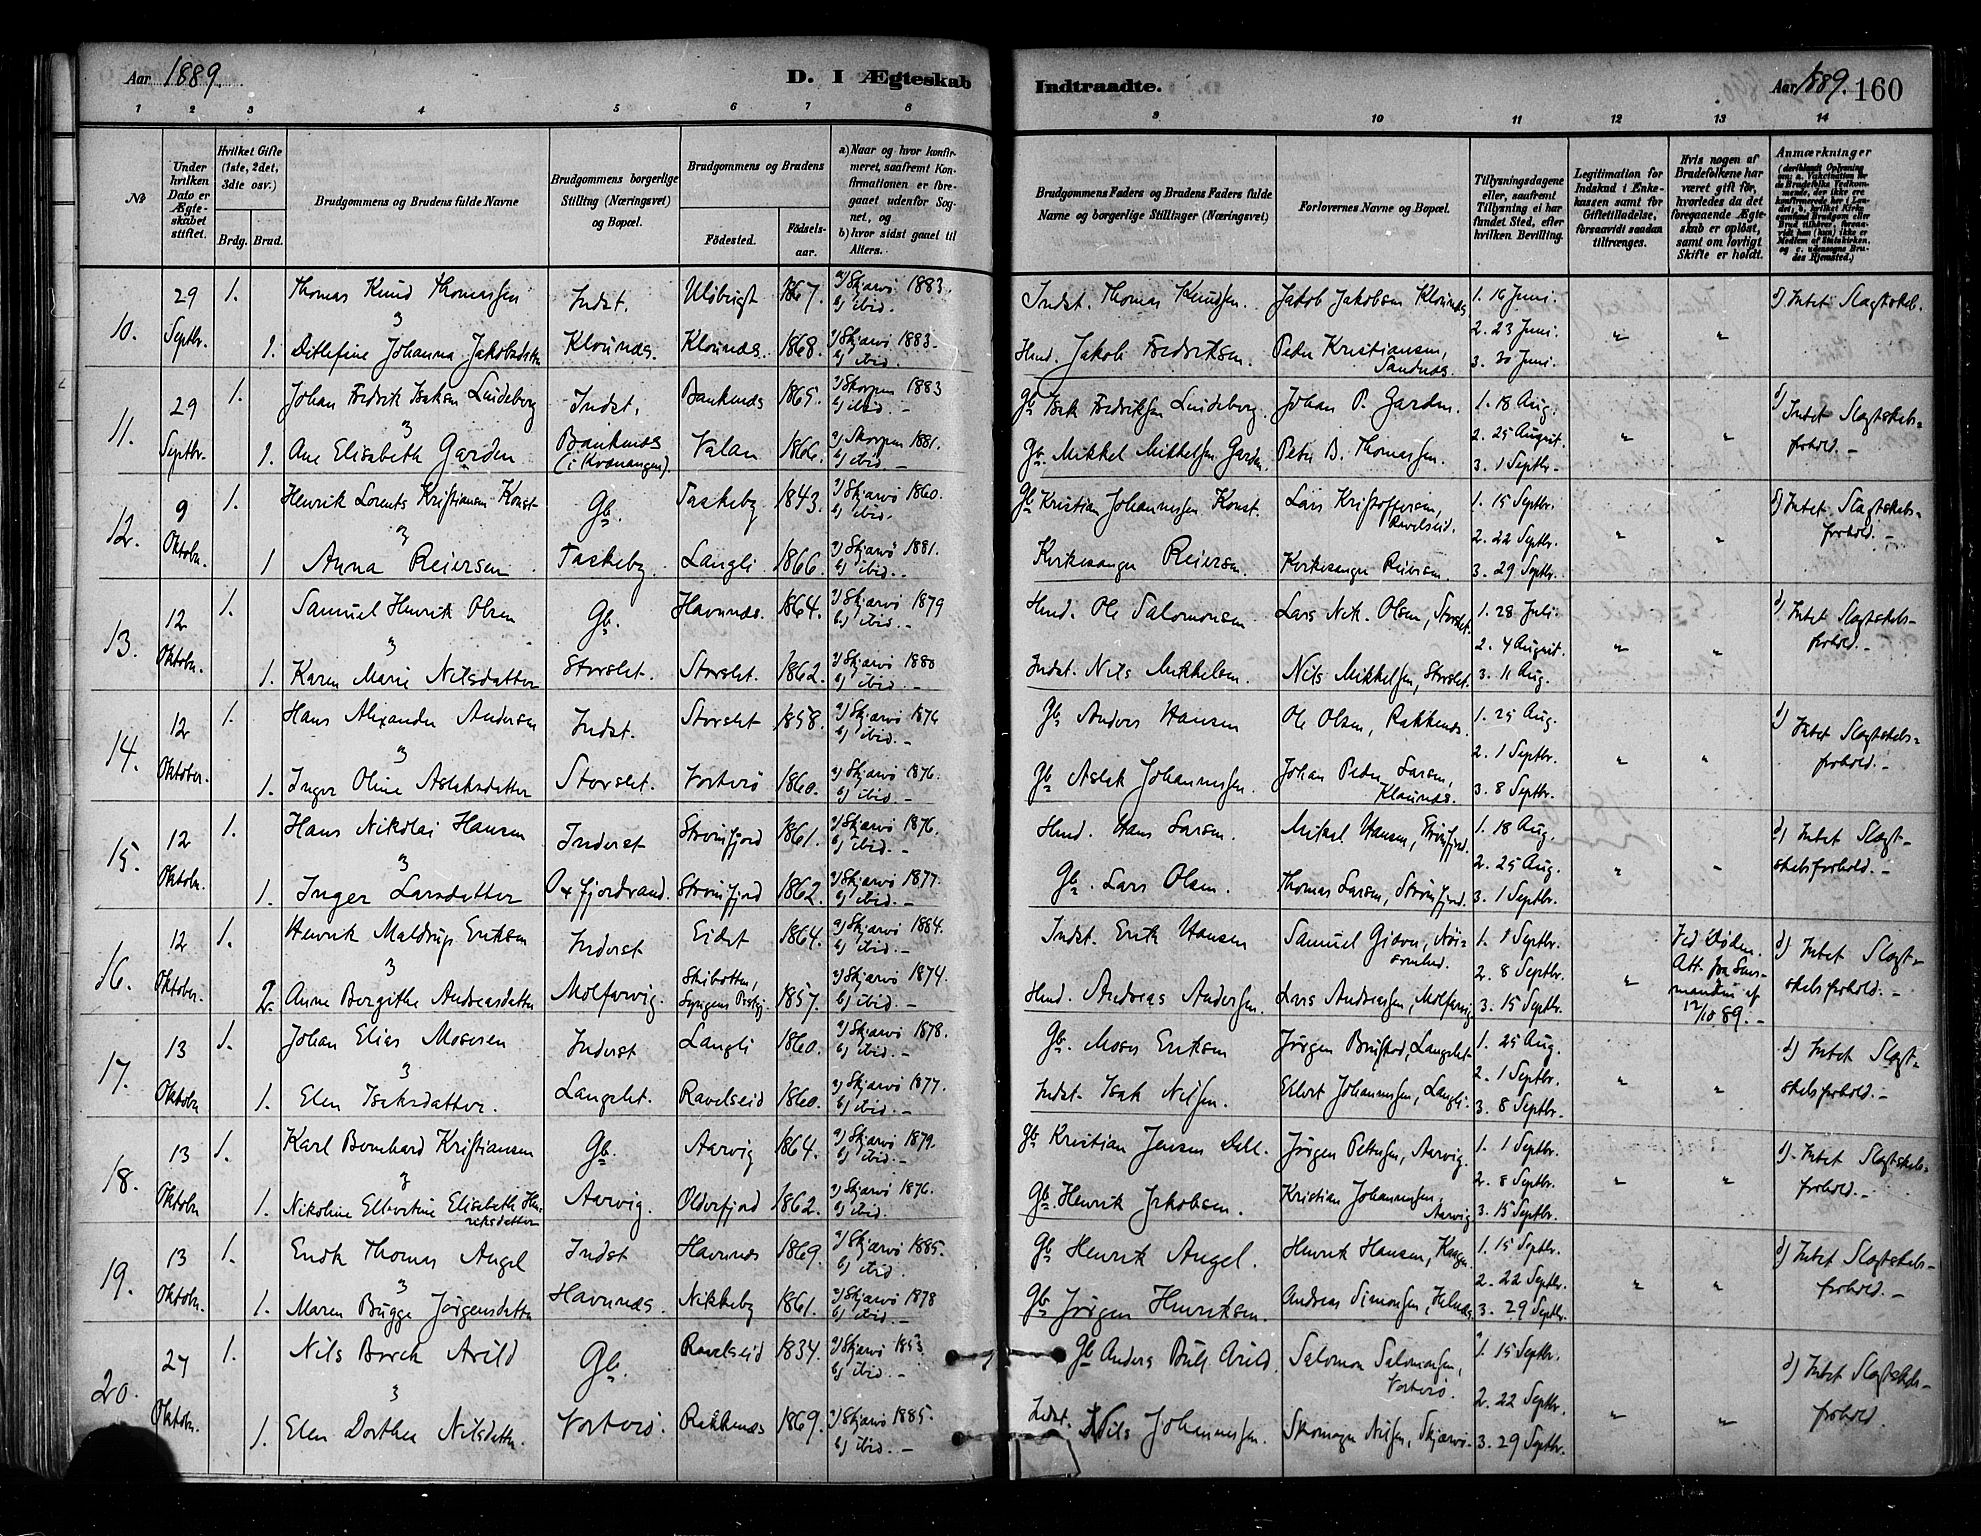 Aar 1889.
D. I Ægteskab
Indtraadte.
Aar 1889. 160
1 2 3 4 5 6 7 8
9 10 11 12 13 14
№
Under hvilken Dato er Ægteskabet stiftet.
Hvilket Gifte (1ste, 2det, 3die osv.)
Brdg. Brud.
Brudgommens og Brudens fulde Navne
Brudgommens borgerlige Stilling (Næringsvei) og Bopæl.
Brudgommens og Brudens
Fødested. Fødselsaar.
a) Naar og hvor konfirmeret, saafremt Konfirmationen er foregaaet udenfor Sognet, og
b) hvor sidst gaaet til Alters.
Brudgommens Faders og Brudens Faders fulde Navne og borgerlige Stillinger (Næringsvei)
Forlovernes Navne og Bopæl.
Tillysningsdagene eller, saafremt Tillysning ei har fundet Sted, efter hvilken Bevilling.
Legitimation for Indskud i Enkekassen samt for Giftetilladelse, forsaavidt saadan tiltrænges.
Hvis nogen af Brudefolkene har været gift før, hvorledes da det foregaaende Ægteskab er opløst, samt om lovligt Skifte er holdt.
Anmærkninger
10. 29 Septbr. 1. Thomas Knud Thomassen Indst. Ulöbrigt 1867. a) Skjærvö 1883. b) ibid.
Indst. Thomas Knudsen. Jakob Jakobsen Klovnæs 1. 16 Juni. d) Intet Slagtskab.
1. Ditlefine Johanna Jakobsdatter Klovnæs. Klovnæs. 1868. a) Skjærvö 1883. b) ibid.
Hmd. Jakob Fredriksen. Peder Kristiansen, Sandnæs. 2. 23 Juni. 3. 30 Juni. " "
11. 29 Septbr. 1. Johan Fredrik Isaksen Lindeborg Indst. Bankenæs 1865. a) Skorpen 1883 b) ibid. –
Gb. Isak Fredriksen Lindeborg. Johan P. Garden. 1. 18 Aug. d) Intet Slagtskabsforhold. –
1. Ane Elisabeth Garden Bankenæs (i Kvænangen). Valan 1866. a) Skorpen 1881. b) ibid. –
Gb. Mikkel Mikkelsen Garden. Peder B. Thomassen. 2. 25 August. 3. 1 Septbr. " "
12. 9 Oktobr. 1. Henrik Lorents Kristiansen Konst Gb. Taskeby 1843. a) Skjærvö 1860. b) ibid.
Gb. Kristian Johannessen Konst. Lars Kristoffersen, Ravelseid. 1. 15 Septbr. d) Intet Slagtskabsforhold. –
1 Anna Reiersen Taskeby. Langli 1866. a) Skjærvö 1881. b) ibid. –
Kirkesanger Reiersen. Kirkesanger Reiersen. 2. 22 Septbr. 3. 29 Septbr. " "
13. 12 Oktobr. 1. Samuel Henrik Olsen Gb. Havnnæs. 1864. a) Skjærvö 1879 b) ibid. –
Hmd. Ole Salomonsen. Lars Nik. Olsen, Storslet. 1. 28 Juli. d) Intet Slagtskabsforhold. –
1. Karen Marie Nilsdatter Storslet. Storslet. 1862. a) Skjærvö 1880 b) ibid. –
Indst. Nils Mikkelsen. Nils Mikkelsen, Storslet. 2. 4 August. 3. 11 Aug. " "
14. 12 Oktober. 1. Hans Alexander Andersen Indst. Storslet 1858. a) Skjærvö 1876 b) ibid. –
Gb. Anders Hansen Ole Olsen, Rakkenæs. 1. 25 Aug. d) Intet Slagtskabsforhold. –
1. Inger Oline Aslaksdatter Storslet. Vorterö 1860. a) Skjærvö 1876. b) ibid. –
Gb. Aslak Johannessen. Johan Peder Larsen, Klaunæs. 2. 1 Septbr. 3. 8 Septbr. " "
15. 12 Oktobr. 1. Hans Nikolai Hansen Inderst Strömfjord 1861. a) Skjærvö 1876. b) ibid. –
Hmd. Hans Larsen. Mikkel Hansen, Strömfjord. 1. 18 Aug. d) Intet Slagtskabsforhold. –
1. Inger Larsdatter Oxfjordvand. Strömfjord 1862. a) Skjærvö 1877. b) ibid. –
Gb. Lars Olsen. Thomas Larsen, Strömfjord. 2. 25 Aug. 3. 1 Septbr. " "
16. 12 Oktober. 1. Henrik Maldrup Eriksen Inderst Eidet 1864. a) Skjærvö 1884. b) ibid. –
Indst. Erik Hansen Samuel Giæver, 1. 1 Septbr. Ved Døden. Att. fra Lensmanden af 12/10 89. – d) Intet Slagtskabsforhold. –
2. Anne Bergithe Andreasdatter Molfarvig. Skibotten, Lyngens Prstgj. 1857. a) Skjærvö 1874. b) ibid. –
Hmd. Andreas Andersen. Lars Andreassen, Molfarvig 2. 8 Septbr. 3. 15 Septbr. "
17. 13 Oktobr 1. Johan Elias Mosesen Inderst Langli 1860. a) Skjærvö 1878. b) ibid. –
Gb. Moses Eriksen Jørgen Brustad, Langslet 1. 25 Aug. d) Intet Slagtskabsforhold. –
1. Elen Isaksdatter. Langslet. Ravelseid 1860. a) Skjærvö 1877. b) ibid. –
Indst. Isak Nilsen. Elbert Johannessen, Langli. 2. 1 Septbr. 3. 8 Septbr. " "
18. 13 Oktobr 1. Karl Bernhard Kristiansen Gb. Aarvig 1864. a) Skjærvö 1879. b) ibid. –
Gb. Kristian Jensen Dall. Jørgen Petersen, Aarvig. 1. 1 Septbr. d) Intet Slagtskabsforhold. –
1. Nikoline Elbertine Elisabeth Henriksdatter Aarvig. Olderfjord 1862. a) Skjærvö 1876. b) ibid.
Gb. Henrik Jakobsen. Kristian Johannessen, Aarvig 2. 8 Septbr. 3. 15 Septbr. " "
19. 13 Oktobr. 1. Endk Thomas Angel Indst Havnnæs 1869. a) Skjærvö 1885. b) ibid.
Gb. Henrik Angel. Henrik Hansen, Kaagen. 1. 15 Septbr. d) Intet Slagtskabsforhold. –
1. Maren Bugge Jørgensdatter Havnnæs. Nikkeby 1861. a) Skjærvö 1878 b) ibid. –
Gb. Jørgen Henriksen. Andreas Simonsen, Helnæs. 2. 22 Septbr. 3. 29 Septbr. " "
20. 27 Oktobr. 1. Nils Borch Arild Gb. Ravelseid 1834. a) Skjærvö 1853 b) ibid. –
Gb. Anders Bull Arild. Salomon Salomonsen, Vorterö. 1. 15 Septbr. d) Intet Slagtskabsforhold.
1. Elen Dorthea Nilsdatter. Vorterö. Rakkenæs 1869. a) Skjærvö 1885. b) ibid. –
Indst. Nils Johannessen. Skomager Nilsen, Skjærvö. 2. 22 Septbr. 3. 29 Septbr. " "